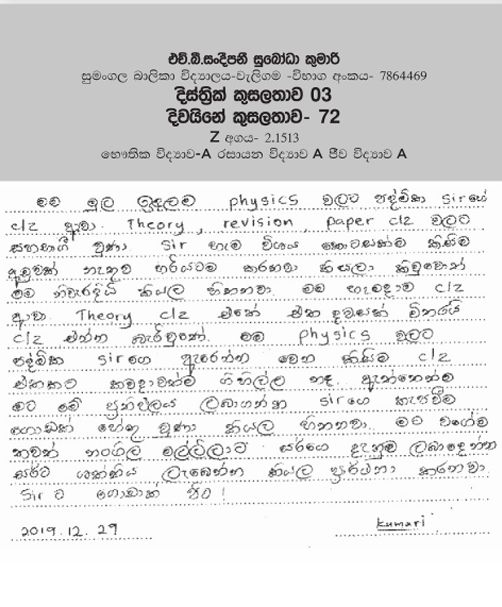 එච්.බී.සංදීපනී සුබෝධා කුමාරි
සුමංගල බාලිකා විද්‍යාලය-වැලිගම -විභාග අංකය- 7864469
දිස්ත්‍රික් කුසලතාව 03
දිවයිනේ කුසලතාව- 72
Z අගය- 2.1513
භෞතික විද්‍යාව-A රසායන විද්‍යාව A ජීව විද්‍යාව A
මම මුල ඉඳලම physics වලට පද්මික Sirගෙ
clz ආවා. Theory, revision, paper clz වලට
සහභාගී වුණා. Sir හැම විශය කොටසක්ම කිසිම
අඩුවක් නැතුව හරියටම කරනවා කියලා කිවුවොත්
මම නිවැරදියි කියල හිතනවා. මම හැමදාව clz
ආවා. Theory clz එකේ එක දවසක් විතරයි
clz එන්න බැරිවුණේ. මම physics වලට
පද්මික Sirගෙ ඇරෙන්න වෙන කිසිම clz
එකකට කවදාවත්ම ගිහිල්ල නෑ. ඇත්තෙන්ම
මට මේ ප්‍රතිඵලය ලබාගන්න Sirගෙ කැපවීම
ගොඩක් හේතු වුණා කියල හිතනවා. මට වගේම
තවත් නංගිල මල්ලිලාට සරගෙ දැනුම ලබාදෙන්න
සර්ට ශක්තිය ලැබෙන්න කියල ප්‍රාර්ථනා කරනවා.
Sir ට ගොඩාක් පිං!
2019.12.29
kumari